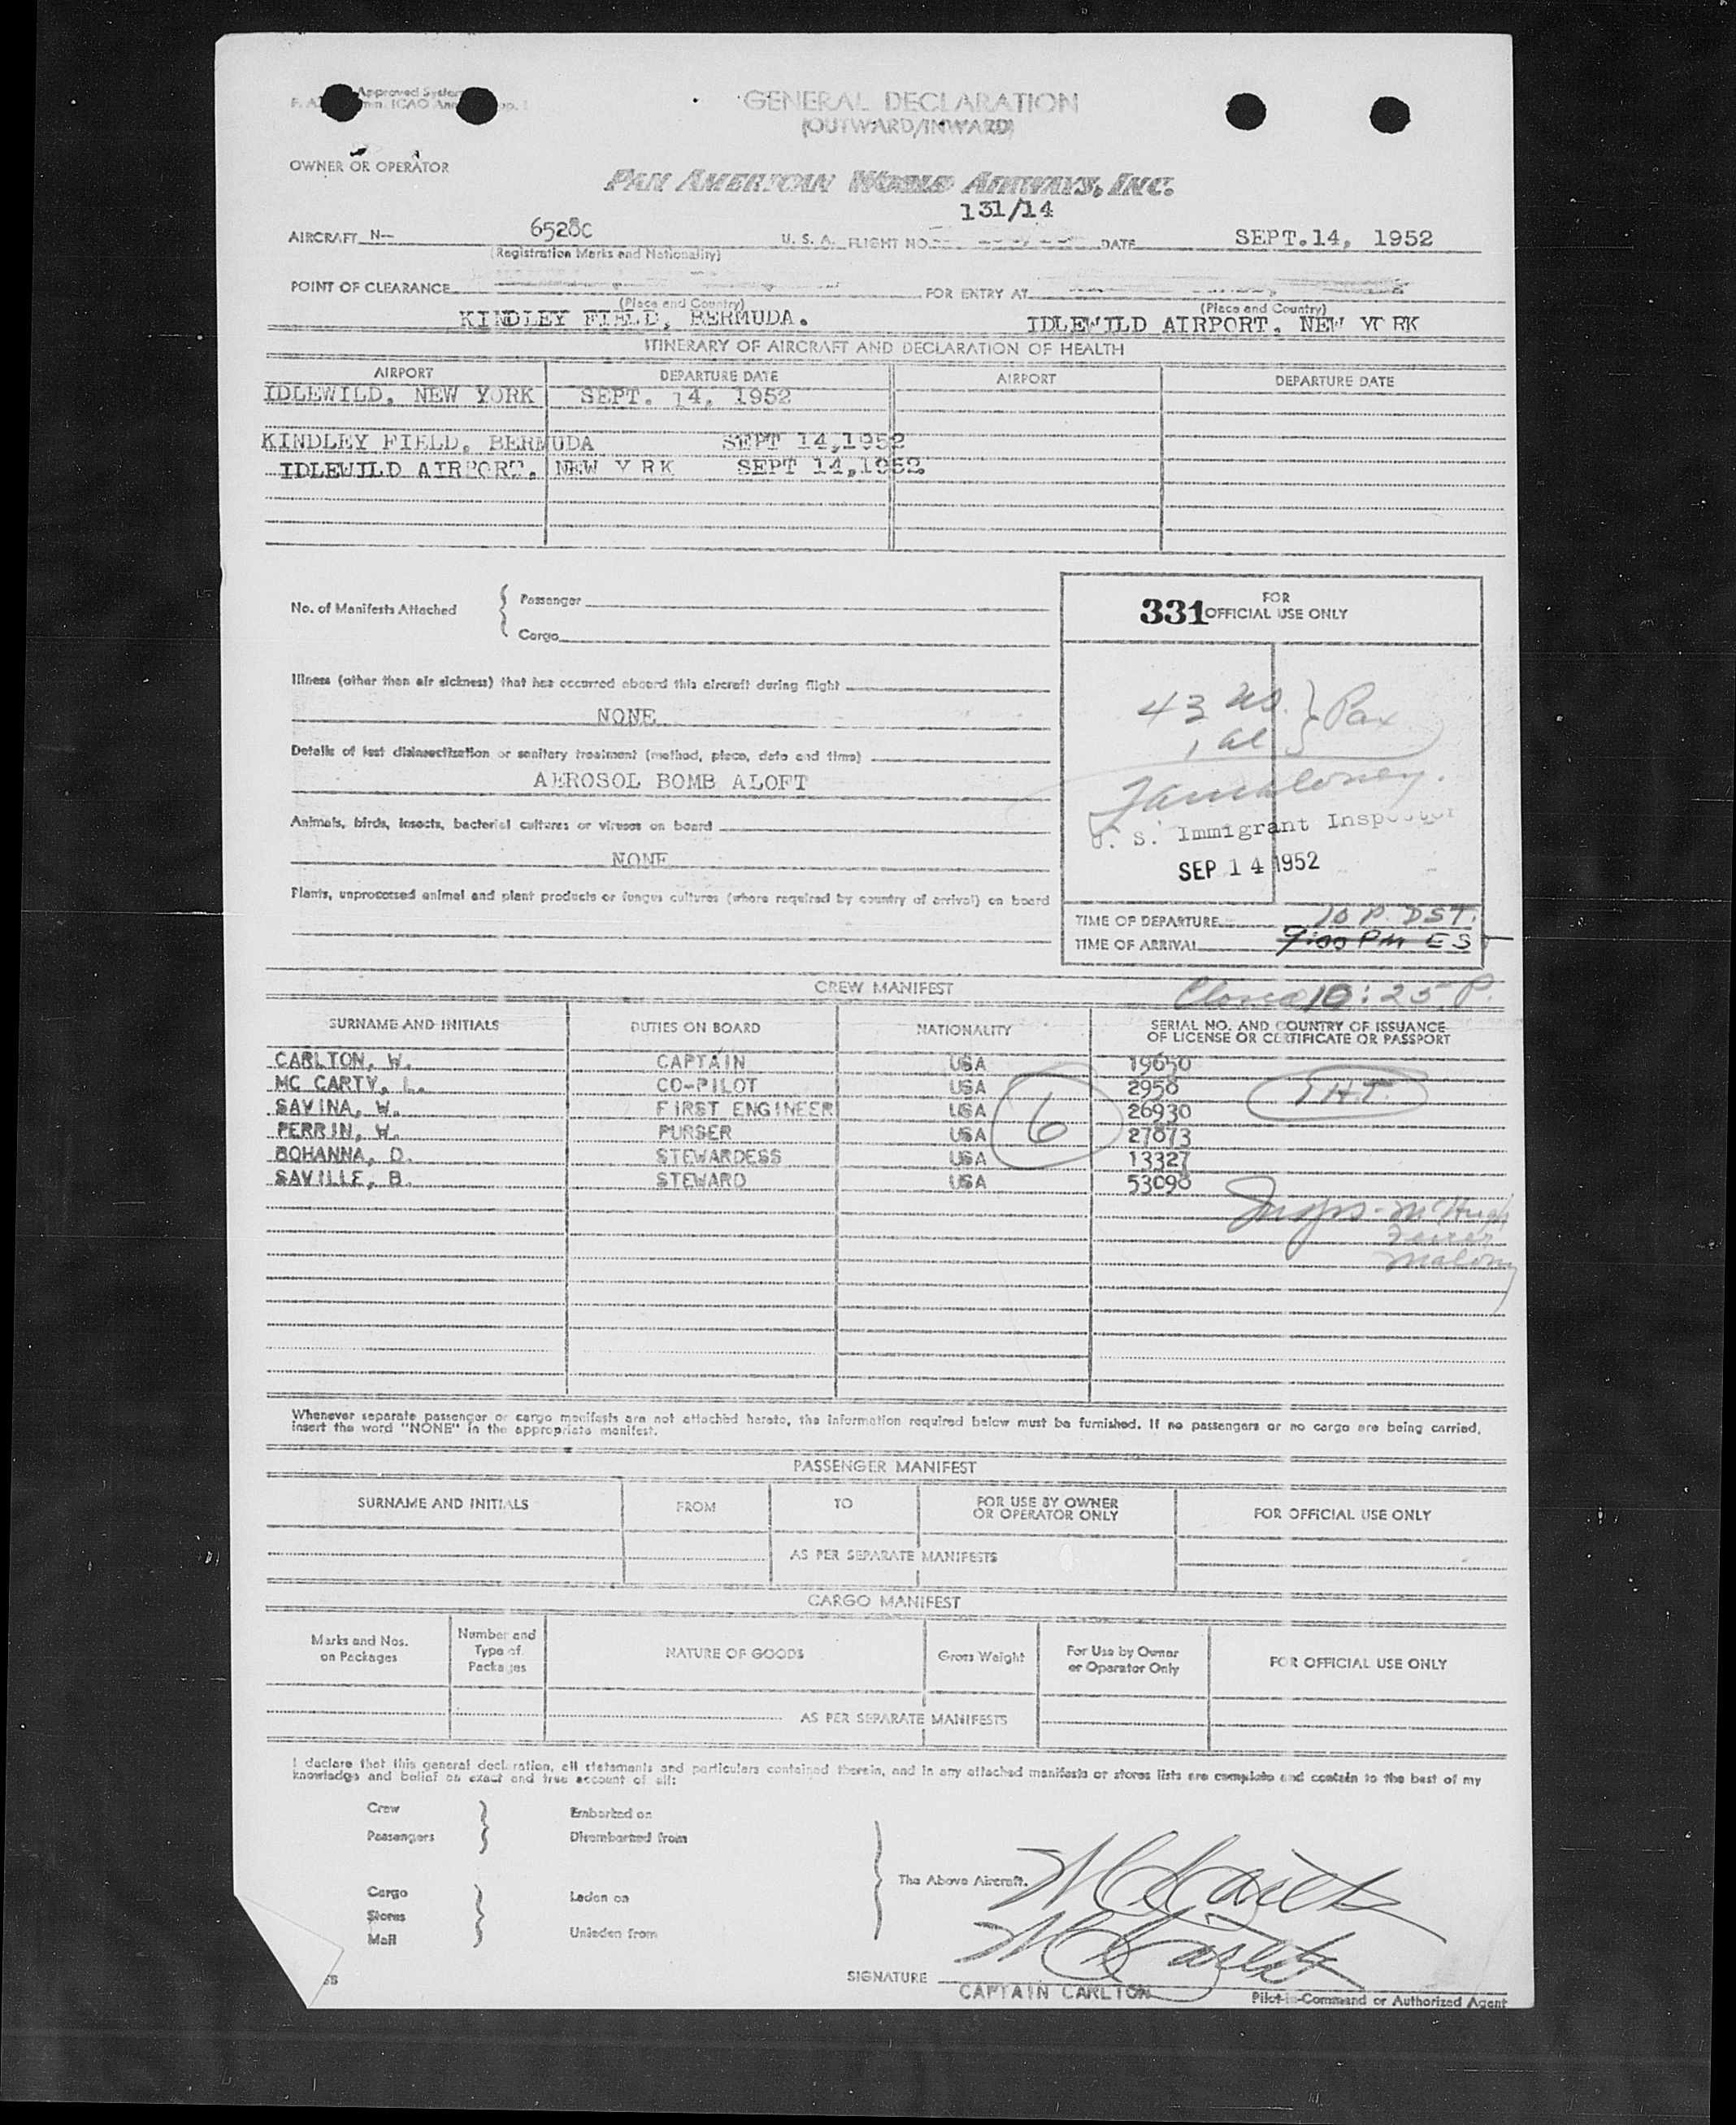 Approved System
GENERAL DECLARATION
(OUTWARD/INWARD)
OWNER OR OPERATOR
PAN AMERICAN WORLD AIRWAYS, INC.
131/14
AIRCRAFT N— 6528C U. S. A. FLIGHT NO. DATE SEPT.14, 1952
(Registration Marks and Nationality)
POINT OF CLEARANCE FOR ENTRY AT
(Place and Country) (Place and Country)
KINDLEY FIELD, BERMUDA. IDLEWILD AIRPORT. NEW YORK
ITINERARY OF AIRCRAFT AND DECLARATION OF HEALTH
AIRPORT DEPARTURE DATE AIRPORT DEPARTURE DATE
IDLEWILD, NEW YORK SEPT. 14, 1952
KINDLEY FIELD, BERMUDA SEPT 14,1952
IDLEWILD AIRPORT, NEW Y RK SEPT 14,1952
No. of Manifests Attached
Passenger
Cargo
331 FOR OFFICIAL USE ONLY
43 us. } Pax
1 al
Illness (other than air sickness) that has occurred aboard this aircraft during flight
NONE
Details of last disinsectization or sanitary treatment (method, place, date and time)
AEROSOL BOMB ALOFT
Animals, birds, insects, bacterial cultures or viruses on board
NONE
Plants, unprocessed animal and plant products or fungus cultures (where required by country of arrival) on board
U. S. Immigrant Inspector
SEP 14 1952
TIME OF DEPARTURE 10 P. DST.
TIME OF ARRIVAL 9:00 PM EST
CREW MANIFEST
10:25 P.
SURNAME AND INITIALS DUTIES ON BOARD NATIONALITY SERIAL NO. AND COUNTRY OF ISSUANCE
OF LICENSE OR CERTIFICATE OR PASSPORT
CARLTON, W. CAPTAIN USA 19650
MC CARTY, L. CO-PILOT USA 2958
SAVINA, W. FIRST ENGINEER USA 26930
PERRIN, W. PURSER USA 27873
BOHANNA, D. STEWARDESS USA 13327
SAVILLE, B. STEWARD USA 53098
6
1 H.T.
Insps. McHugh
Malony
Whenever separate passenger or cargo manifests are not attached hereto, the information required below must be furnished. If no passengers or no cargo are being carried,
insert the word "NONE" in the appropriate manifest.
PASSENGER MANIFEST
SURNAME AND INITIALS FROM TO FOR USE BY OWNER
OR OPERATOR ONLY FOR OFFICIAL USE ONLY
AS PER SEPARATE MANIFESTS
CARGO MANIFEST
Marks and Nos.
on Packages
Number and
Type of
Packages
NATURE OF GOODS
Gross Weight
For Use by Owner
or Operator Only
FOR OFFICIAL USE ONLY
AS PER SEPARATE MANIFESTS
I declare that this general declaration, all statements and particulars contained therein, and in any attached manifests or stores lists are complete and contain to the best of my
knowledge and belief an exact and true account of all:
Crew Embarked on
Passengers Disembarked from
The Above Aircraft.
Cargo Laden on
Stores
Mail Unladen from
SIGNATURE
CAPTAIN CARLTON Pilot-in-Command or Authorized Agent